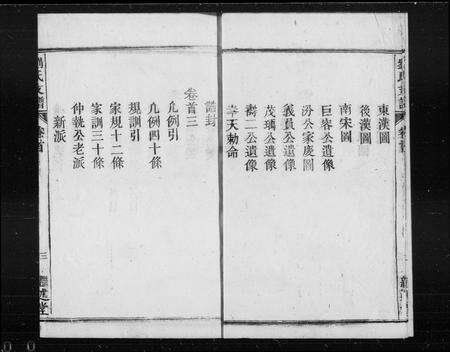 東漢圖
後漢圖
南宋圖
巨容公遺像
汾公家慶圖
義員公遺像
茂瑀公遺像
壽二公遺像
奉天勅命
誥封
卷首三
凡例引
凡例四十條
規訓引
家規十二條
家訓三十條
仲執公老派
新派
氏支譜
卷首
三